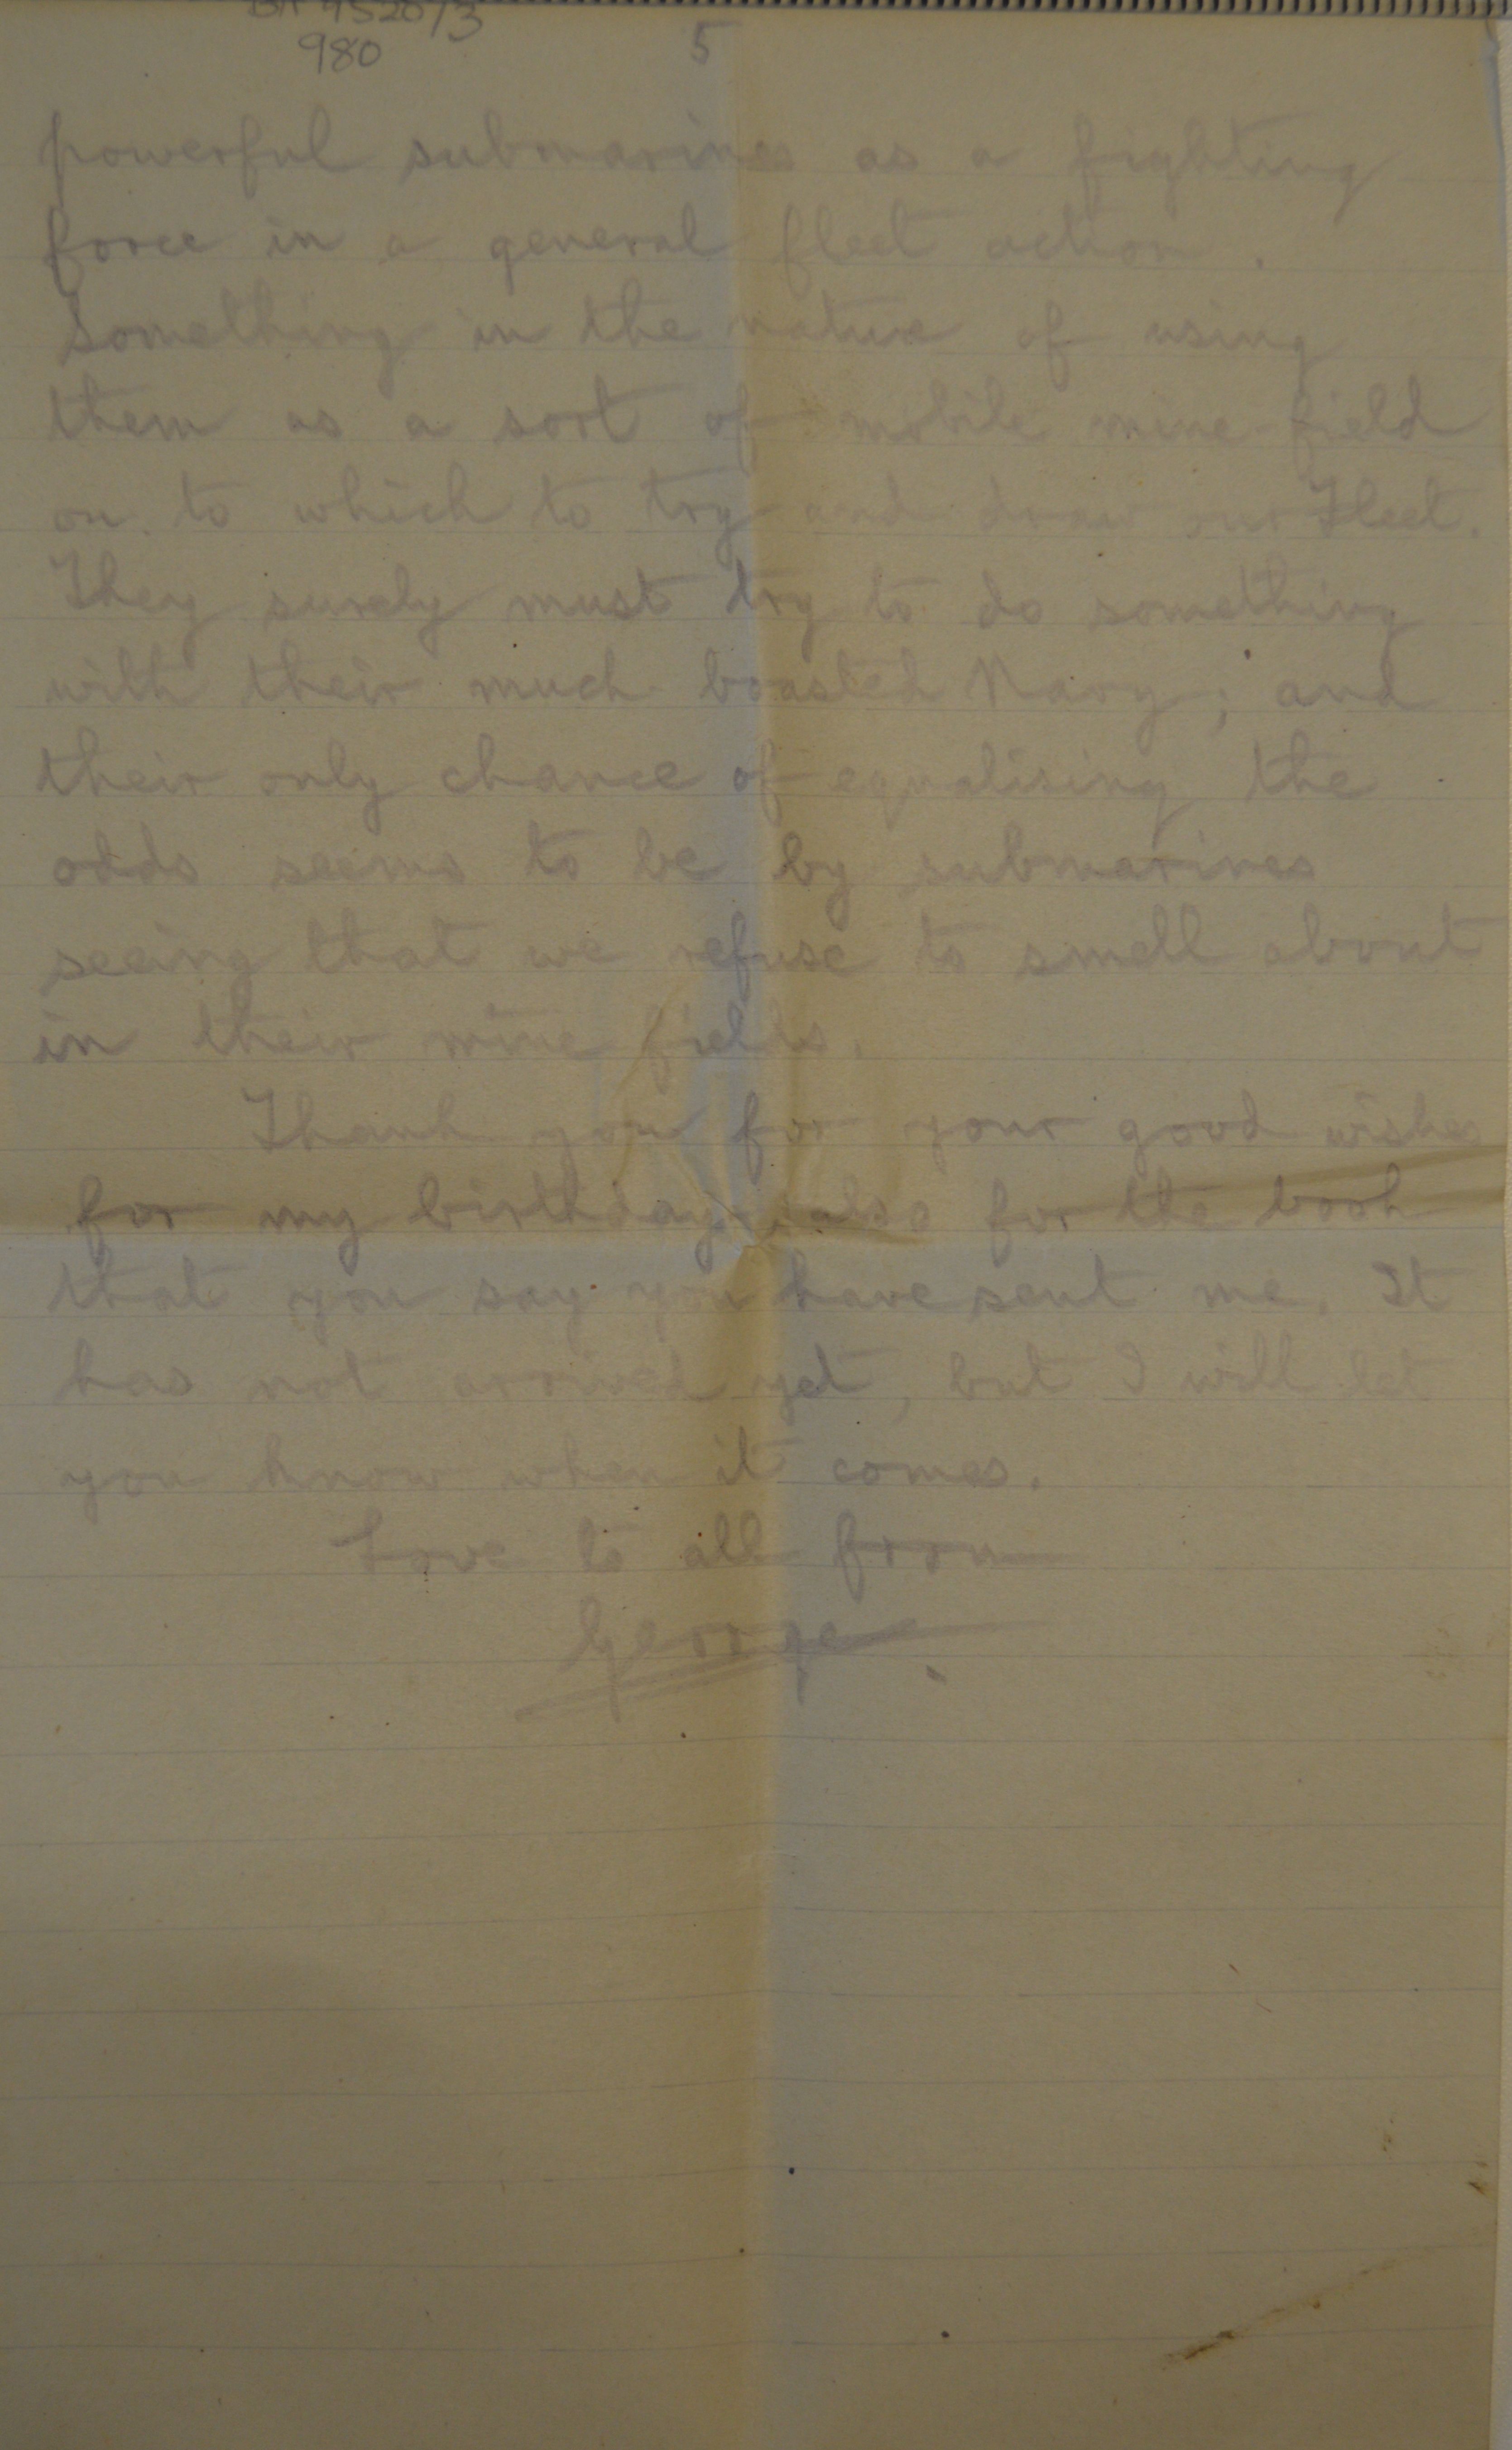 9520/3
980
5
powerful submarines as a fighting
force in a general fleet action.
Something in the nature of using
them as a sort of mobile mine-field
on to which to try and draw our Fleet.
They surely must try to do something
with their much boasted Navy; and
their only chance of equalising the
odds seems to be by submarines
seeing that we refuse to smell about
in their mine fields.
Thank you for your good wishes
for my birthday; also for the book
that you say you have sent me. It
has not arrived yet, but I will let
you know when it comes.
Love to all from
George